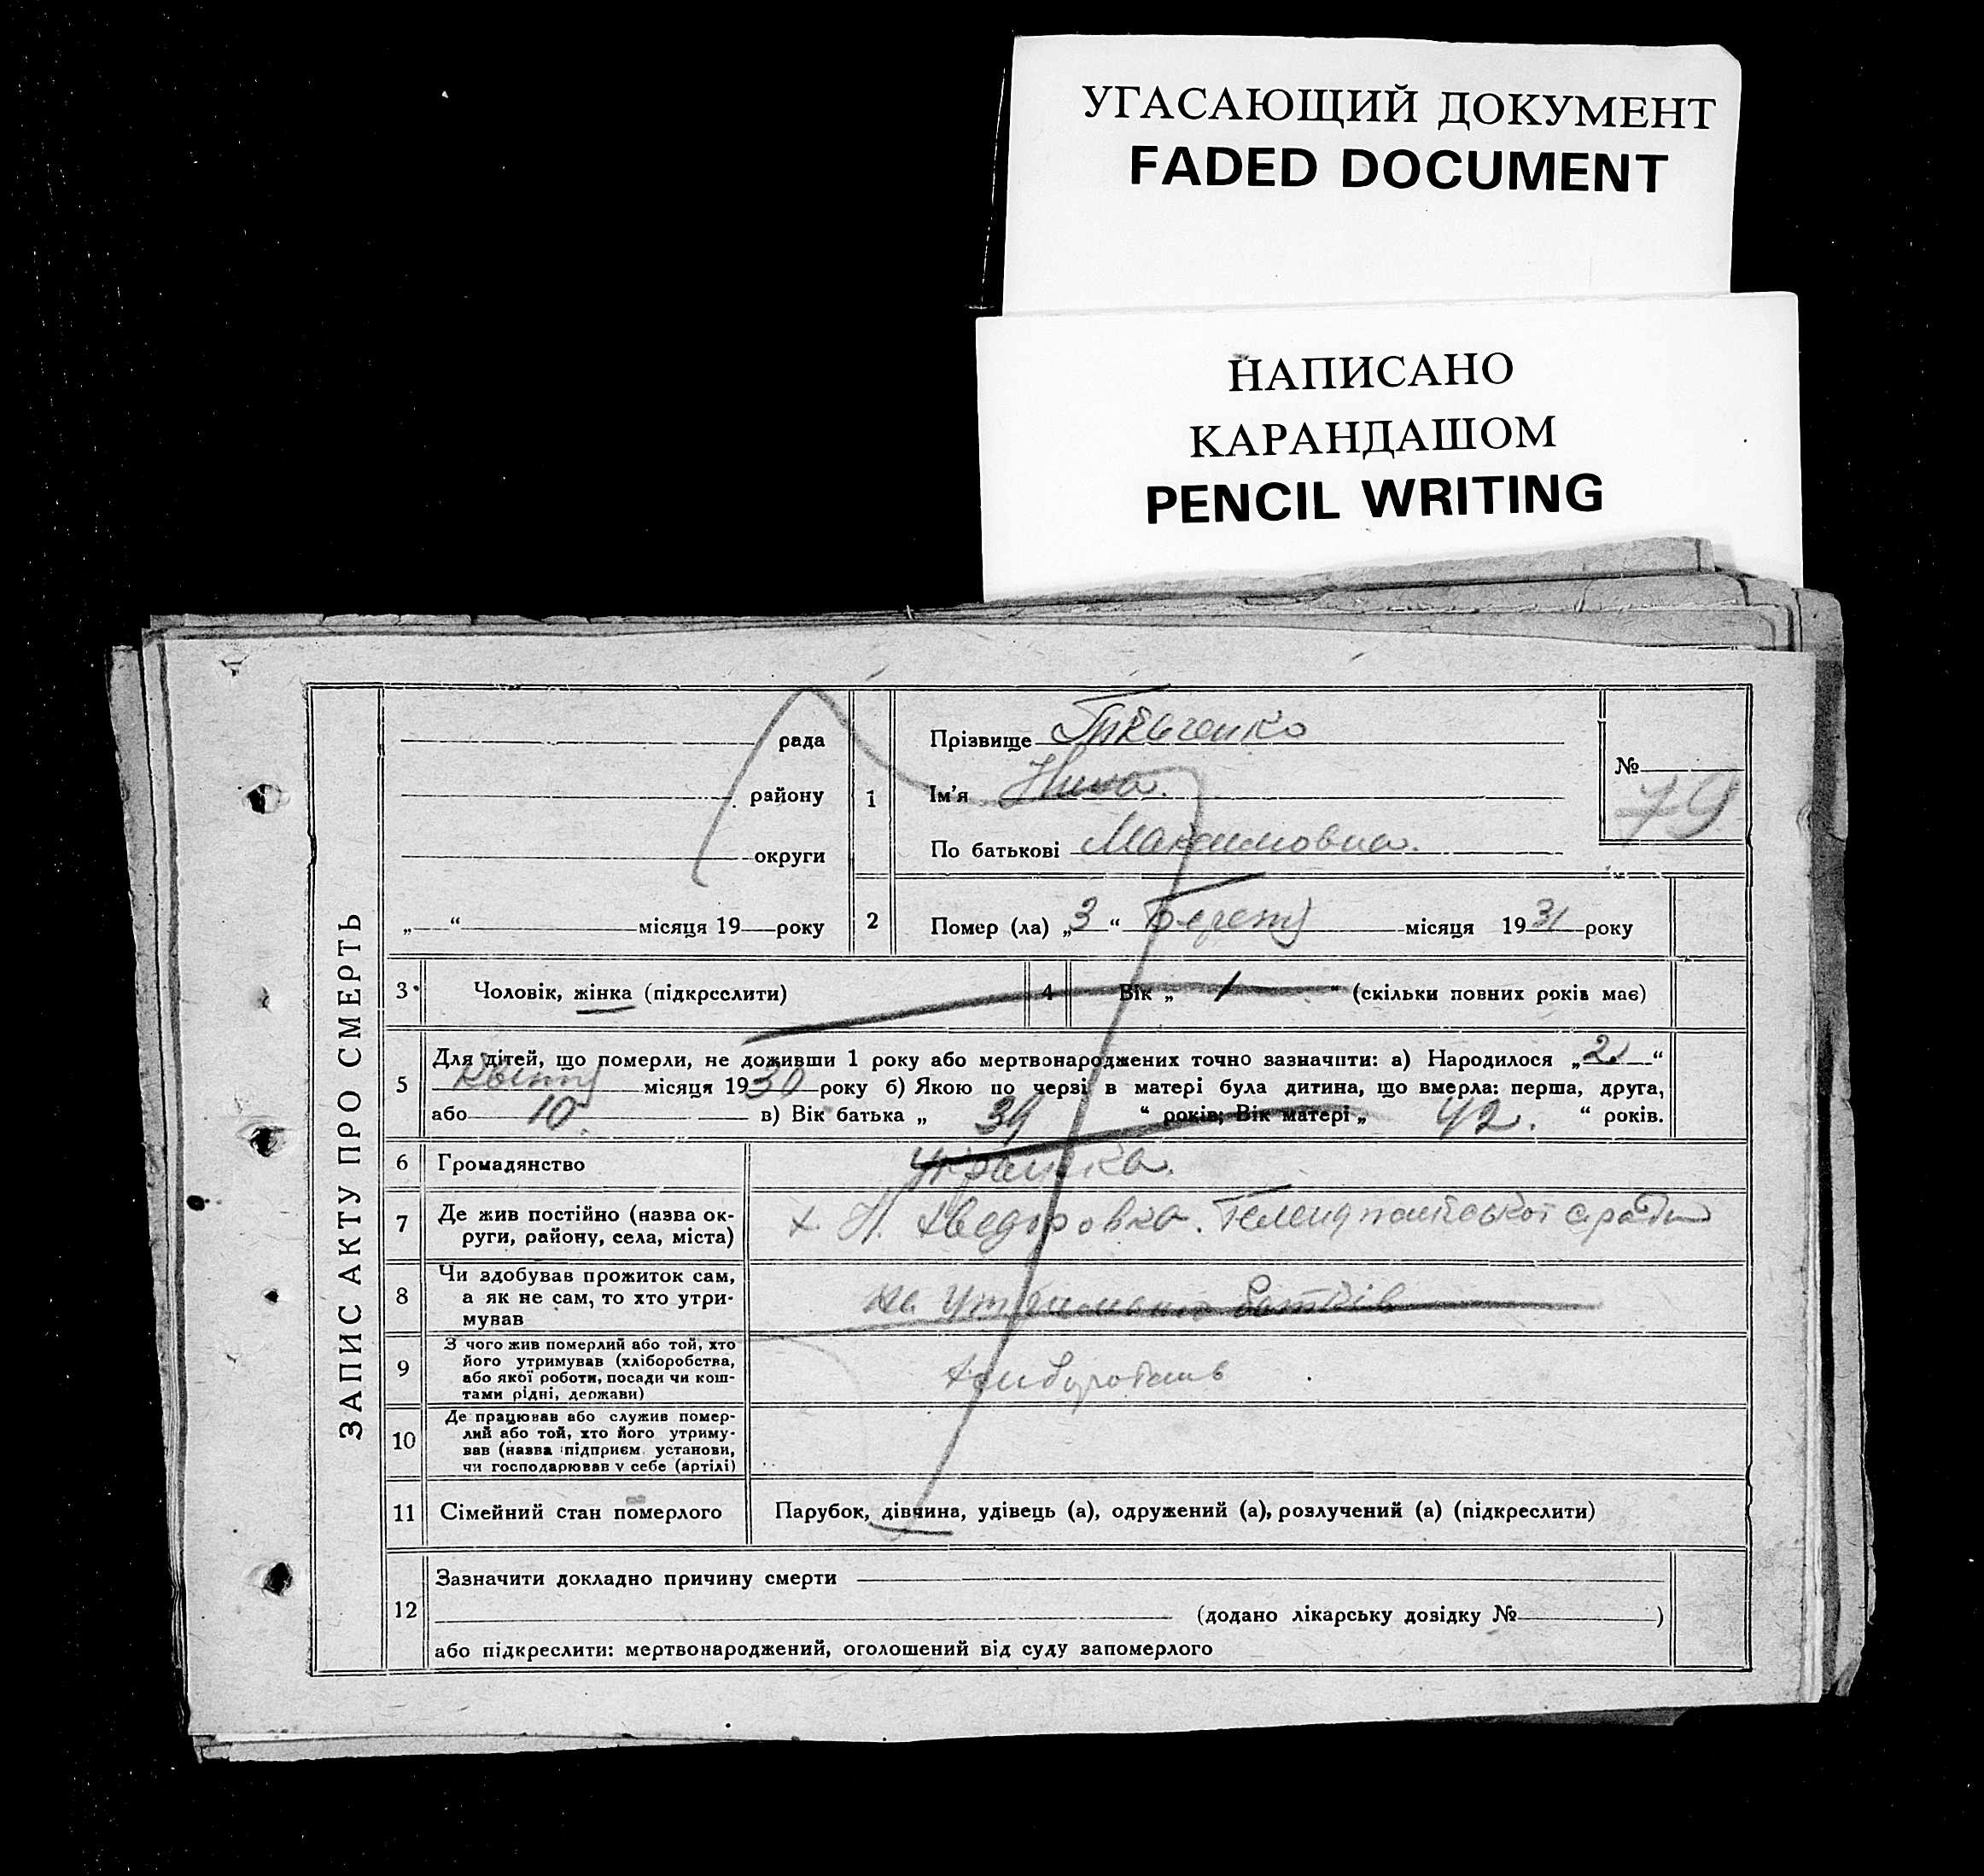 УГАСАЮЩИЙ ДОКУМЕНТ
FADED DOCUMENT
НАПИСАНО
КАРАНДАШОМ
PENCIL WRITING
ЗАПИС АКТУ ПРО СМЕРТЬ
рада
району
округи
„ “ місяця 19 року
1
Прізвище
Ім'я Нина.
По батькові Максимовна.
№
79
2 Помер (ла) „3“ місяця 1931 року
3 Чоловік, жінка (підкреслити)
4 Вік „ 1 “ (скільки повних років має)
5
Для дітей, що померли, не доживши 1 року або мертвонароджених точно зазначити: а) Народилося „2“
місяця 1930 року б) Якою по черзі в матері була дитина, що вмерла: перша, друга,
або 10 в) Вік батька „ “ років; Вік матері „ 42. “ років.
6 Громадянство Українка.
7 Де жив постійно (назва ок-
руги, району, села, міста)
х. Н. Хведоровка.
8 Чи здобував прожиток сам,
а як не сам, то хто утри-
мував
на утриманні батьків
9 З чого жив померлий або той, хто
його утримував (хліборобства,
або якої роботи, посади чи кош-
тами рідні, держави)
10 Де працював або служив помер-
лий або той, хто його утриму-
вав (назва підприєм. установи,
чи господарював у себе (артілі)
11 Сімейний стан померлого Парубок, дівчина, удівець (а), одружений (а), розлучений (а) (підкреслити)
12
Зазначити докладно причину смерти
(додано лікарську довідку № )
або підкреслити: мертвонароджений, оголошений від суду запомерлого